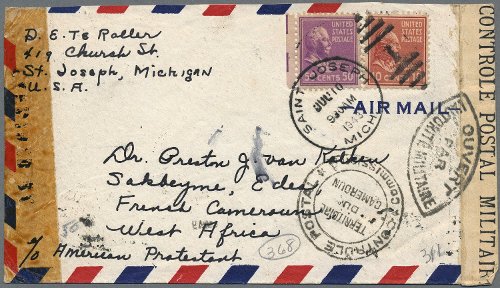 D. E. Te Roller
419 Church St.
St. Joseph, Michigan
U. S. A.
UNITED STATES POSTAGE
CENTS 50
UNITED STATES POSTAGE
SAINT JOSEPH
MICH
AIR MAIL
Dr. Preston J. van Kolken
Sakbeyme, Edea
French Cameroun
West Africa
c/o American Protestant
368
CONTROLE POSTAL
Commission
TERRITOIRE
DU
CAMEROUN
OUVERT
PAR
AUTORITÉ MILITAIRE
CONTROLE POSTAL MILITAIRE